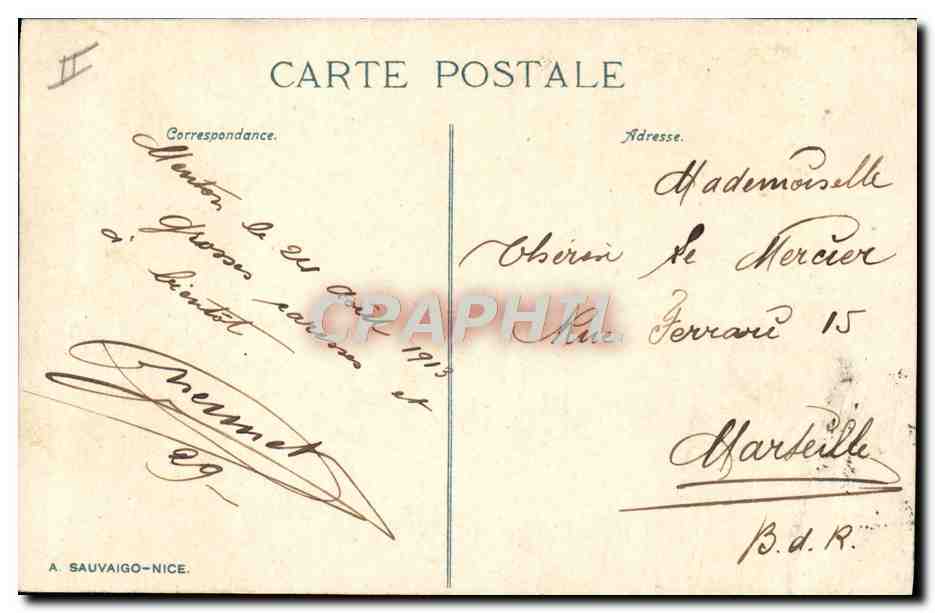 II
CARTE POSTALE
Correspondance.
Menton le 24 août 1913
Grosses caresses et
à bientôt
29
Adresse.
Mademoiselle
Le Mercier
Rue Ferrari 15
Marseille
B.d.R.
CPAPHIL
A. SAUVAIGO-NICE.